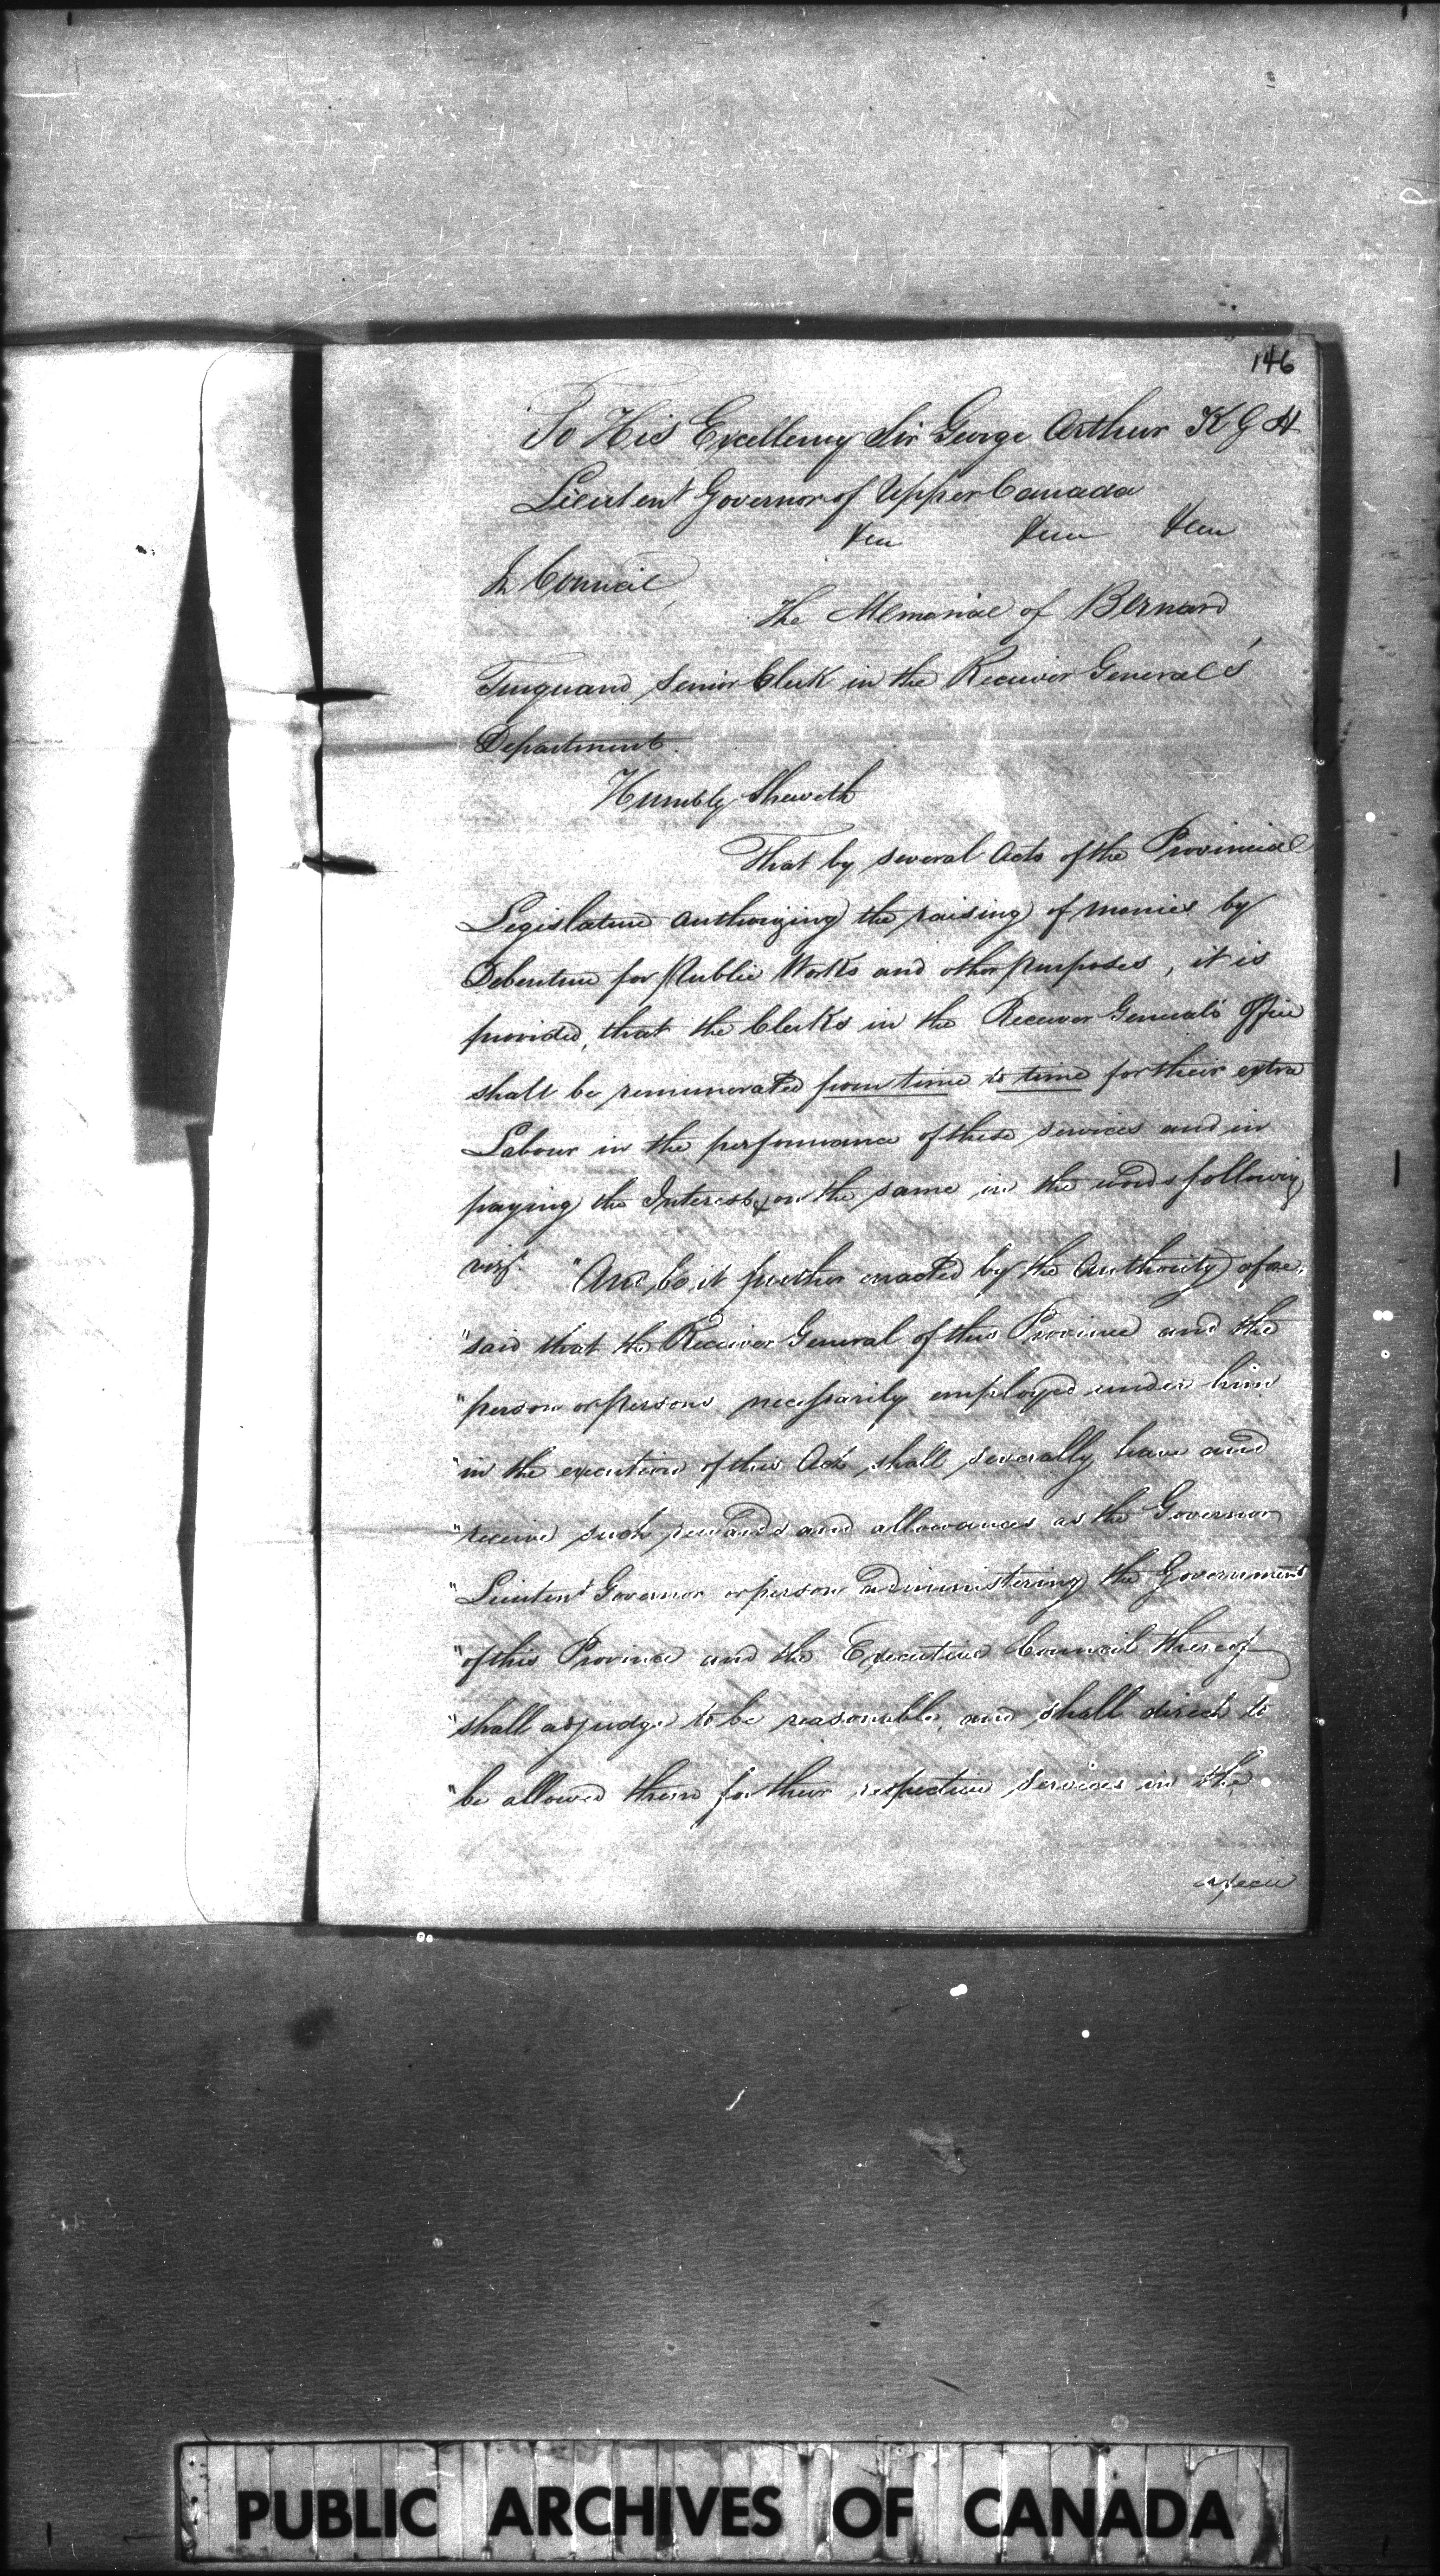 146
To His Excellency Sir George Arthur K G H
Lieutent Governor of Upper Canada
&ca &ca &ca
In Council,
The Memorial of Bernard
Turquand Senior Clerk in the Receiver General's
Department.
Humbly Sheweth
That by several Acts of the Provincial
Legislature authorizing the raising of monies by
Debenture for Public Works and other purposes, it is
provided, that the Clerks in the Receiver General's Office
shall be remunerated from time to time for their extra
Labour in the performance of these services and in
paying the Interest on the same in the words following
viz. "And be it further enacted by the Authority afore,
"said that the Receiver General of this Province and the
"person or persons necessarily employed under him
"in the execution of this Act shall severally have and
"receive such rewards and allowances as the Governor
"Lieutent Governor or person administering the Government
"of this Province and the Executive Council thereof
"shall adjudge to be reasonable, and shall direct to
"be allowed them for their respective services in the
execu
PUBLIC ARCHIVES OF CANADA